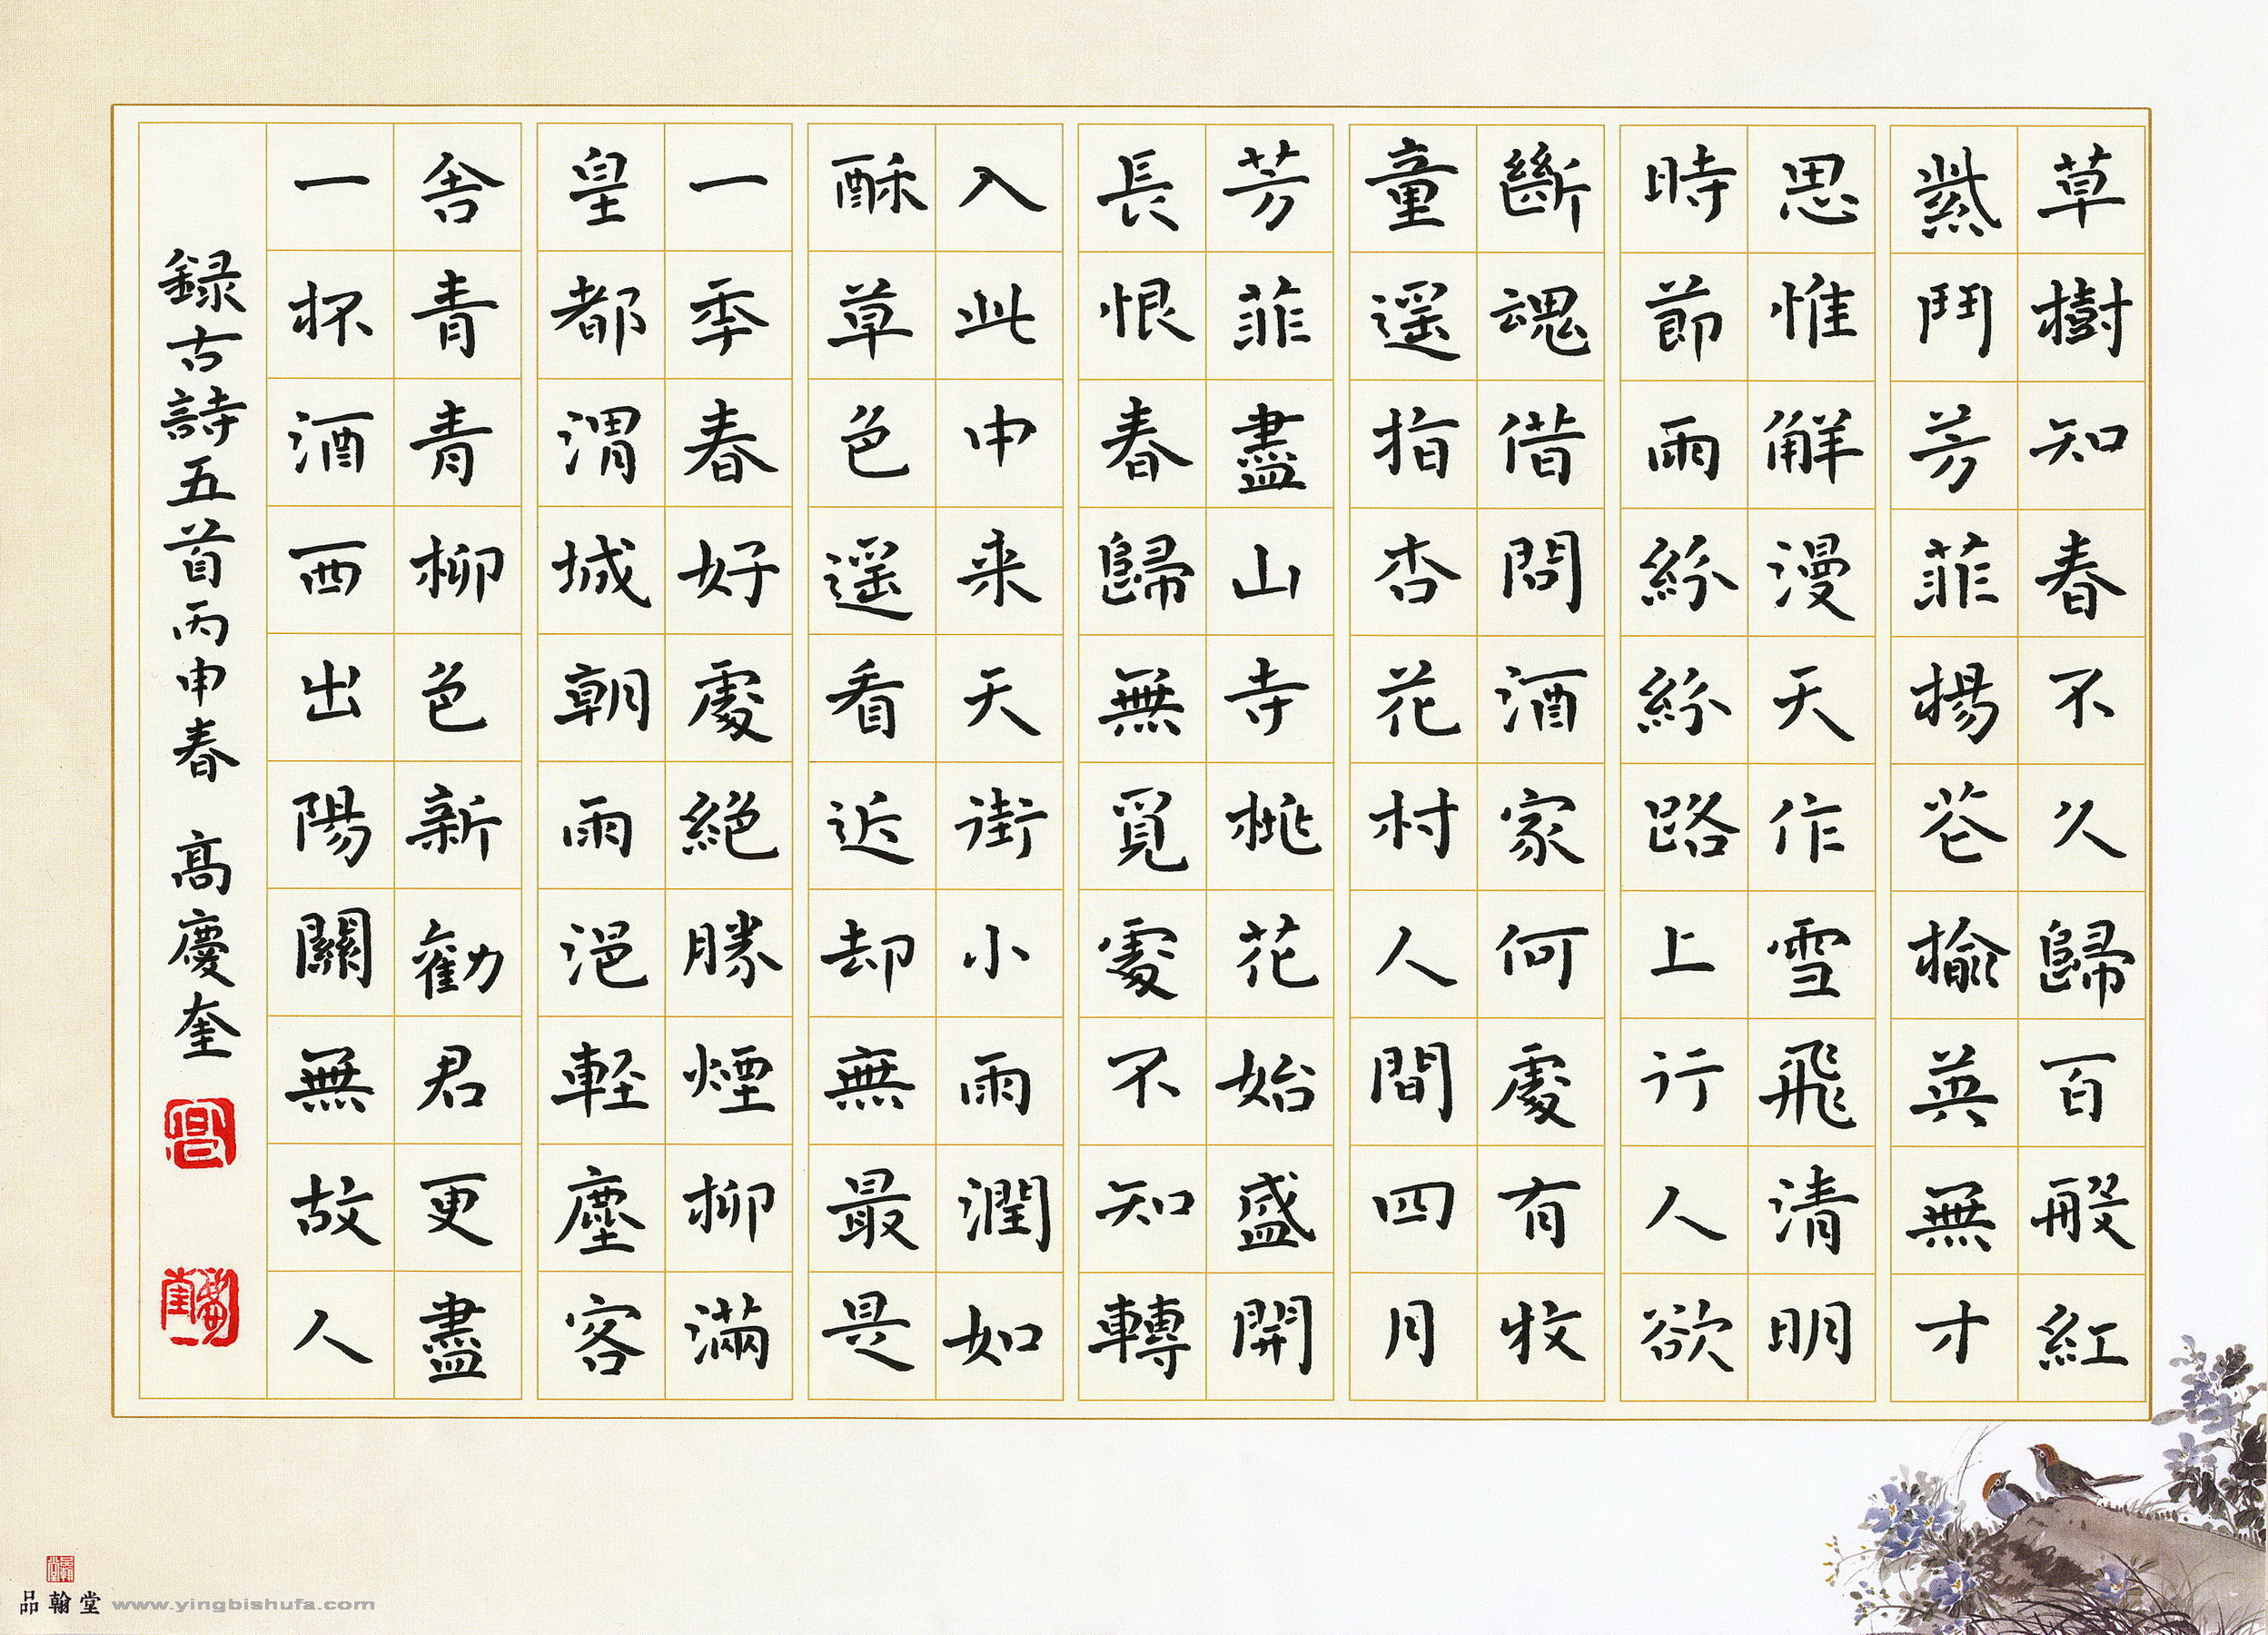 草樹知春不久歸百般紅
紫鬥芳菲楊花榆英無才
思惟解漫天作雪飛清明
時節雨紛紛路上行人欲
斷魂借問酒家何處有牧
童遥指杏花村人間四月
芳菲盡山寺桃花始盛開
長恨春歸無覓處不知轉
入此中来天街小雨潤如
酥草色遥看近却無最是
一秊春好處絕勝煙柳滿
皇都渭城朝雨浥輕塵客
舍青青柳色新勸君更盡
一杯酒西出陽關無故人
録古詩五首丙申春 高慶奎
品翰堂 www.yingbishufa.com